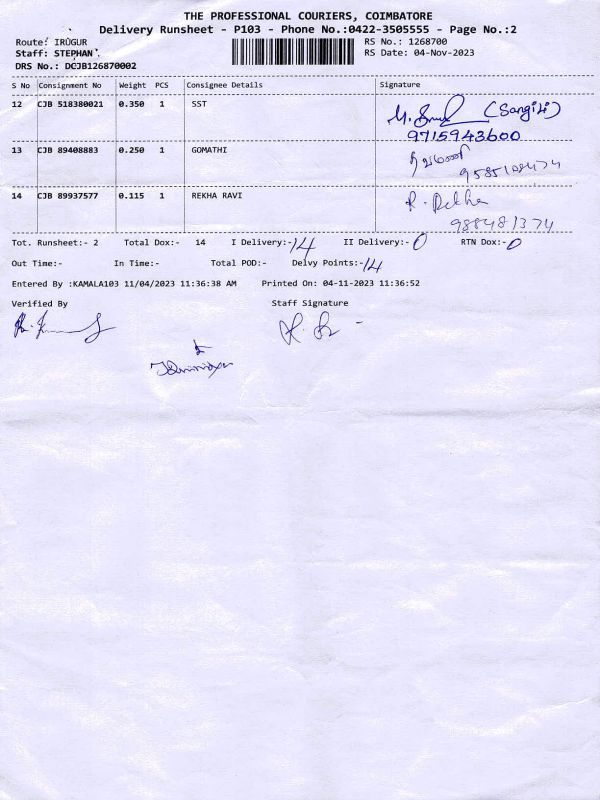 THE PROFESSIONAL COURIERS, COIMBATORE
Delivery Runsheet - P103 - Phone No.:0422-3505555 - Page No.:2
Route: IRUGUR
RS No.: 1268700
Staff: STEPHAN
RS Date: 04-Nov-2023
DRS No.: DCJB126870002
S No Consignment No Weight PCS Consignee Details Signature
12 CJB 518380021 0.350 1 SST
(Sangili)
9715943600
13 CJB 89408883 0.250 1 GOMATHI
14 CJB 89937577 0.115 1 REKHA RAVI R. Rekha
988481374
Tot. Runsheet:- 2 Total Dox:- 14 I Delivery:- 14 II Delivery:- 0 RTN Dox:- 0
Out Time:- In Time:- Total POD:- Delvy Points:- 14
Entered By :KAMALA103 11/04/2023 11:36:38 AM Printed On: 04-11-2023 11:36:52
Verified By Staff Signature